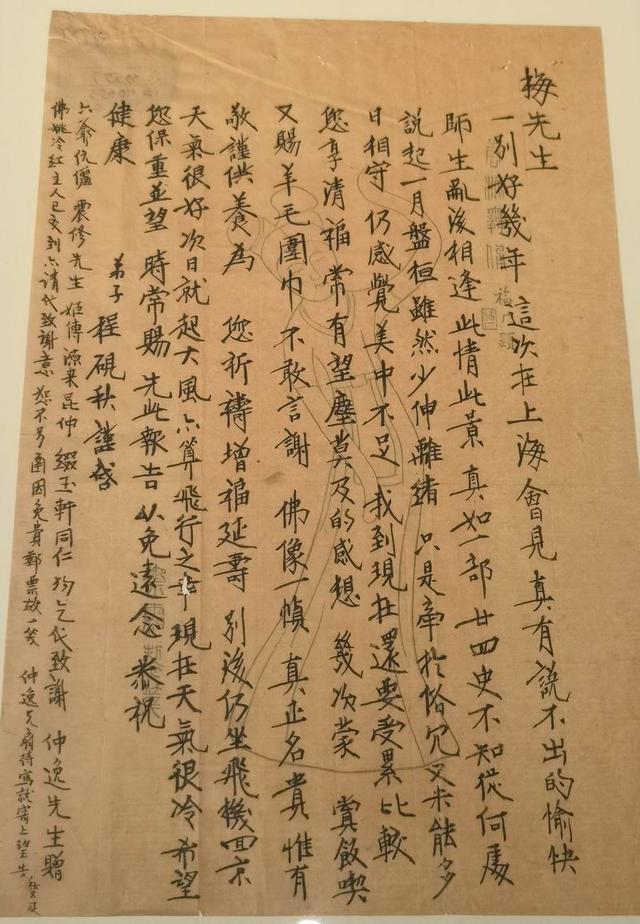 梅先生
一別好幾年 這次在上海會見 真有說不出的愉快
師生亂後相逢 此情此景 真如一部廿四史不知從何處
說起 一月盤桓雖然少伸離緒 只是牽於俗冗又未能多
日相守 仍感覺美中不足 我到現在還要受累 比較
您享清福 常有望塵莫及的感想 幾次蒙 賞飯喫
又賜羊毛圍巾 不敢言謝 佛像一幀 真正名貴 惟有
敬謹供養為 您祈禱增福延壽 別後仍坐飛機回京
天氣很好次日就起大風 亦算飛行之幸 現在天氣很冷 希望
您保重並望 時常賜 先此報告 以免遠念 恭祝
健康
弟子 程硯秋謹啓
六爺伉儷 震修先生 姬傳 源來昆仲 綴玉軒同仁均乞代致謝 仲逸先生贈
佛姚冷紅主人已交到亦請代致謝意 恕不另函因免貴郵票故一笑 仲逸兄扇待寫就寄上望告